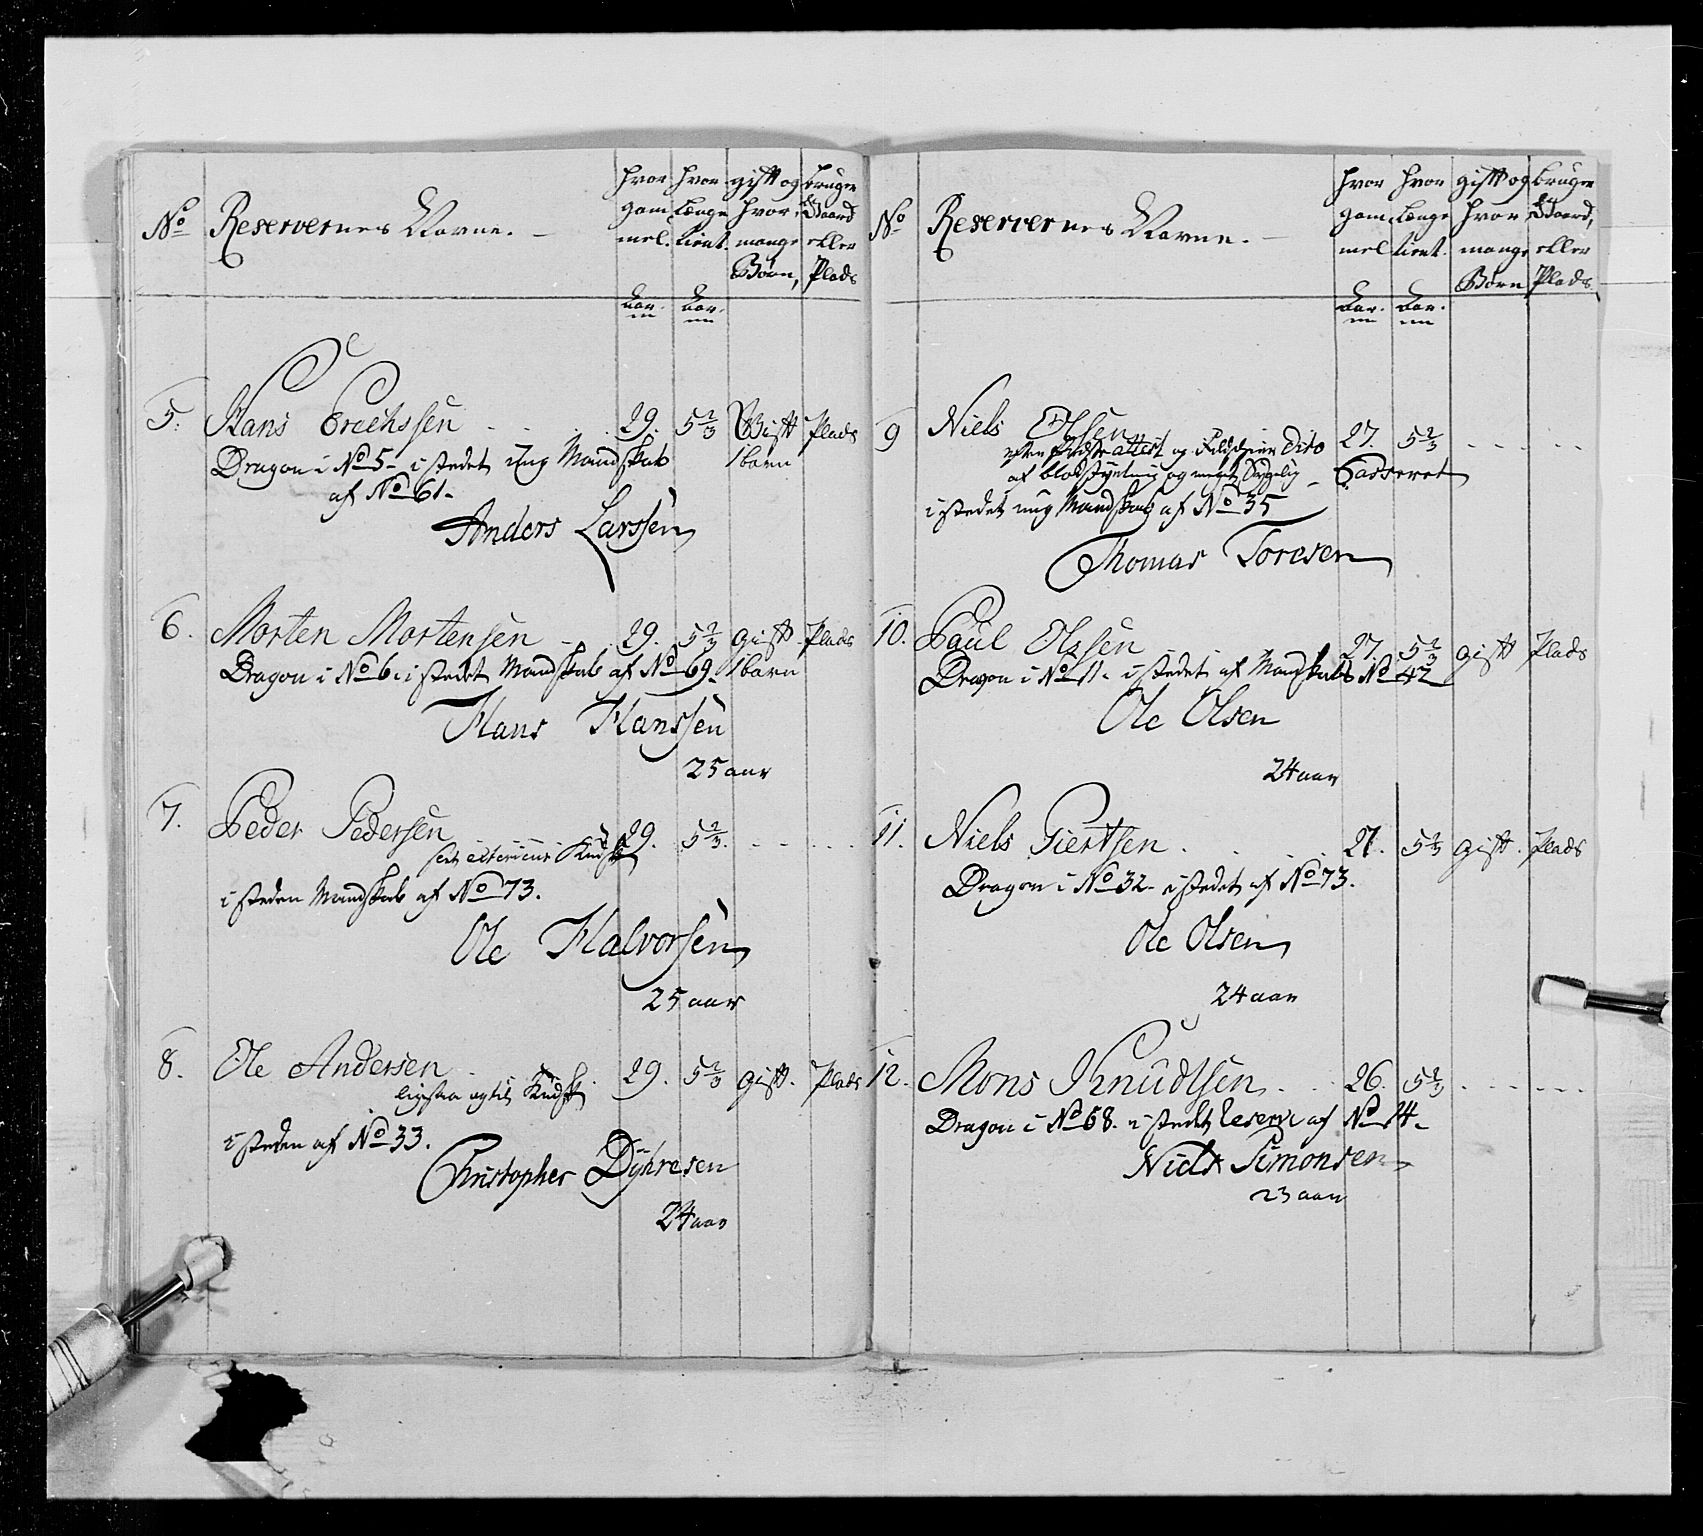 No
Reservernes Navne.
hvor gammel.
Aar.
hvor længe tient.
Aar.
gift og hvor mange Børn,
bruger Gaard eller Plads
5. Hans Erechssen 29. 5 2/3 Gift Plads
Dragon i No 5 - i stedet ung Mandskab 1 barn
af No 61.
Anders Larssen
6. Morten Mortensen 29. 5 2/3 gift Plads
Dragon i No 6. i stedet Mandskab af No 69. 1 barn
Hans Hanssen
25 aar
7. Peder Pedersen 29. 5 2/3
i steden Mandskab af No 73.
Ole Halvorsen
25 aar
8. Ole Andersen 29. 5 2/3 gift. Plads
i steden af No 33.
Christopher Dÿhresen
24 aar
No
Reservernes Navne.
hvor gammel
Aar.
hvor længe tient.
Aar.
gift og hvor mange Børn
bruger Gaard, eller Plads
9 Niels Olsen 27. 5 2/3
attest og Dito
af og meget Sygelig - Casseret
i stedet ung Mandskab af No 35
Thomas Toresen
10. Paul Olssen 27. 5 2/3 gift Plads
Dragon i No 11. i stedet af Mandskab No 42
Ole Olsen
24 aar
11. Niels Giertsen 27. 5 2/3 gift. Plads
Dragon i No 32. i stedet af No 73.
Ole Olsen
24 aar
12. Mons Knudtsen 26. 5 2/3
Dragon i No 68. i stedet Reserv af No 14.
Niels Simonsen
23 aar